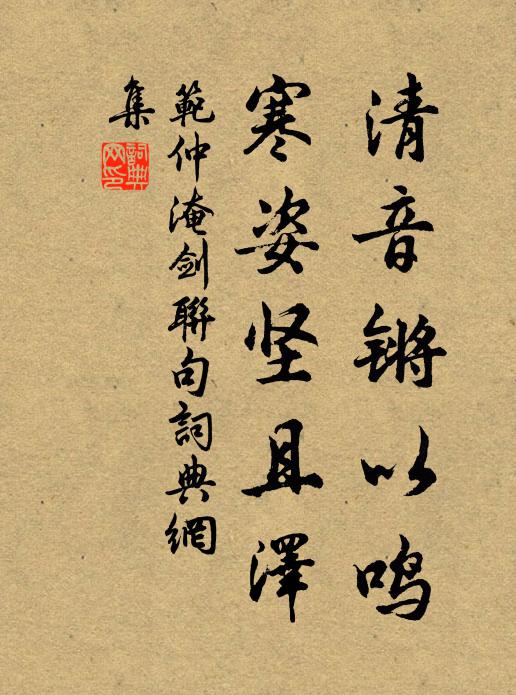 清音锵以鸣
寒姿坚且澤
範仲淹劍聯句詞典網
集
詞典網印